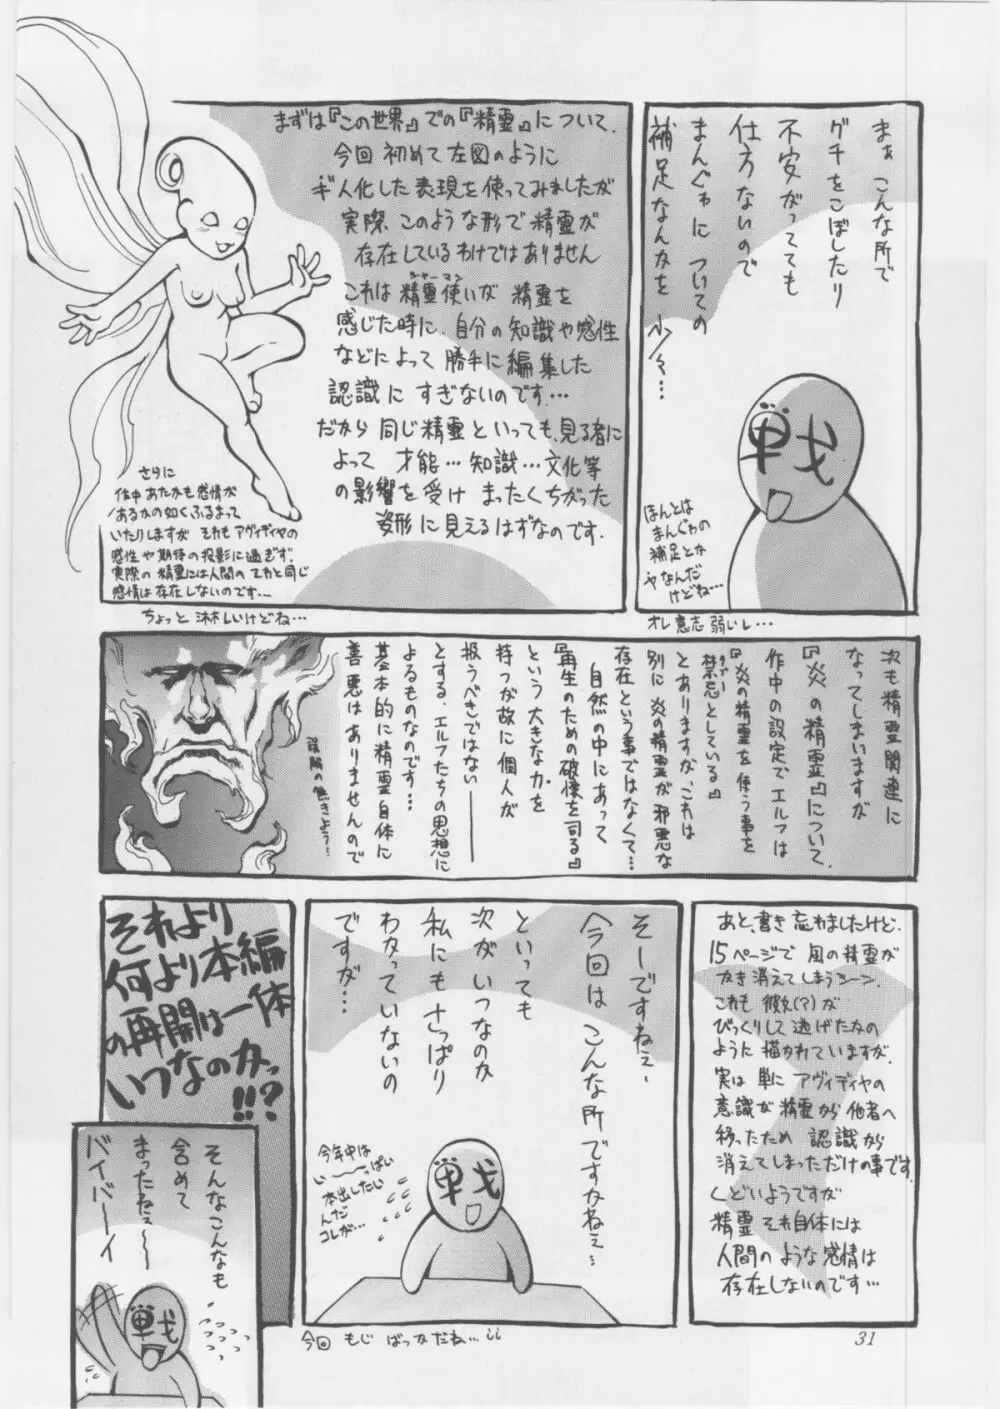 まぁ こんな所で
グチをこぼしたり
不安がってても
仕方ないので
まんがゎに ついての
補足なんかを
ほんとは
まんがゎの
補足とか
やなんだ
けどね…
オレ意志弱いし…
まずは『この世界』での『精霊』について、
今回 初めて左図のように
ギ人化した表現を使ってみましたが
実際、このような形で精霊が
存在しているわけではありません
これは 精霊使いが 精霊を
シャーマン
感じた時に、自分の知識や感性
などによって 勝手に編集した
認識に すぎないのです…
だから 同じ精霊といっても、見る者に
よって 才能…知識…文化等
の影響を受け まったくちがった
姿形に見えるはずなのです.
さらに
作中 あたかも感情が
あるかの如くふるまって
いたりしますが それも アヴィディヤの
感性や期待の投影に過ぎず、
実際の精霊には人間のソレと同じ
感情は存在しないのです…
ちょっと 淋しいけどね…
次も精霊関連に
なってしまいますが
『炎の精霊』について、
作中の設定で エルフは
『炎の精霊を使う事を
禁忌としている』
タブー
とありますが、これは
別に 炎の精霊が 邪悪な
存在という事ではなくて…
自然の中にあって
『再生のための破壊を司る』
という 大きな力を
持つが故に 個人が
扱うべきではない――
とする、エルフたちの思想に
よるものなのです…
基本的に精霊自体に
善悪は ありませんので
あと、書き忘れましたけど.
15ページで 風の精霊が
かき消えてしまうシーン.
これも 彼女(?)が
びっくりして 逃げたかの
ように 描かれていますが.
実は 単に アヴィディヤの
意識が 精霊から 他者へ
移ったため 認識から
消えてしまっただけの事です.
くどいようですが
精霊 それ自体には
人間の ような感情は
存在しないのです…
そーですねぇ、
今回は こんな所ですかねぇ…
といっても
次が いつなのか
私にも さっぱり
わかっていないの
ですが…
戦
今年中は
い〜〜っぱい
本出したい
んだ
コレが…
今回 もじ ばっかだね…
それより
何より本編
の再開は一体
いつなのかっ
!!?
そんなこんなも
含めて
まったねぇ〜〜
バイバーイ
戦
31